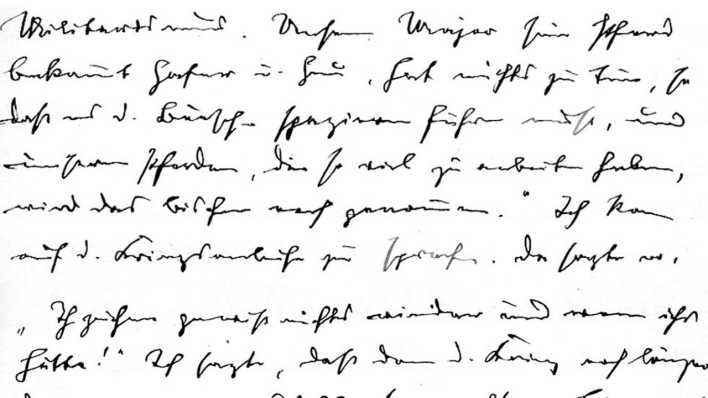 Militarismus. Unsern Major sein Pferd
bekommt Hafer u. Heu, hat nichts zu tun, so
daß es d. Bursche spazieren führen muß, und
unseren Pferden, die so viel zu arbeiten haben,
wird das bischen noch genommen." Ich kam
auf d. Kriegsanleihe zu sprechen. Da sagte er.
„Ich zeichne gewiß nichts wieder und wenn ich
hätte!" Ich sagte, daß dann d. Krieg noch länger